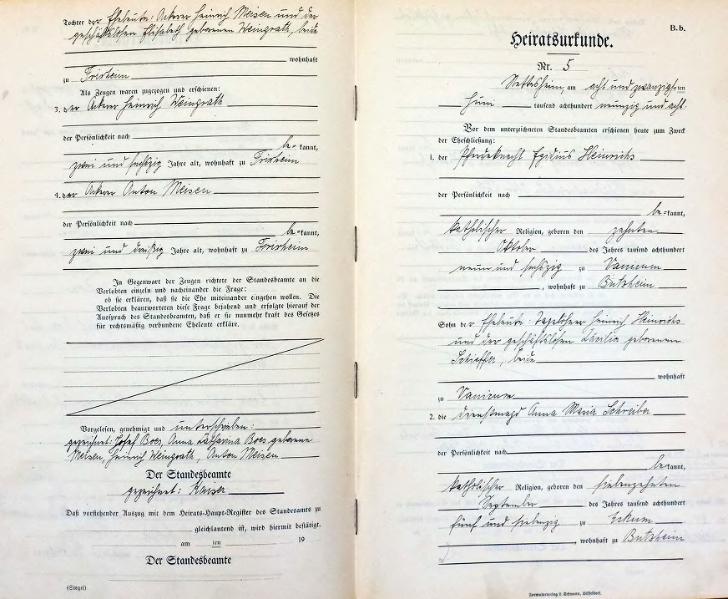 Tochter der Eheleute: Ackerer Heinrich Meisen und der
geschäftslosen Elisabeth geborenen Weingrath, beide
wohnhaft
zu Frixheim
Als Zeugen waren zugezogen und erschienen:
3. der Ackerer Heinrich Weingrath
der Persönlichkeit nach
be-kannt,
zwei und sechszig Jahre alt, wohnhaft zu Frixheim
4. der Ackerer Anton Meisen
der Persönlichkeit nach
be-kannt,
zwei und dreißig Jahre alt, wohnhaft zu Frixheim
In Gegenwart der Zeugen richtete der Standesbeamte an die
Verlobten einzeln und nacheinander die Frage:
ob sie erklären, daß sie die Ehe miteinander eingehen wollen. Die
Verlobten beantworteten diese Frage bejahend und erfolgte hierauf der
Ausspruch des Standesbeamten, daß er sie nunmehr kraft des Gesetzes
für rechtmäßig verbundene Eheleute erkläre.
Vorgelesen, genehmigt und unterschrieben:
gezeichnet: Josef Boes, Anna Catharina Boes geborene
Meisen, Heinrich Weingrath, Anton Meisen
Der Standesbeamte
gezeichnet: Kaiser
Daß vorstehender Auszug mit dem Heirats-Haupt-Register des Standesamts zu
gleichlautend ist, wird hiermit bestätigt.
am ten 19
Der Standesbeamte
(Siegel)
B.b.
Heiratsurkunde.
Nr. 5
am acht und zwanzigsten
Juni tausend achthundert neunzig und acht
Vor dem unterzeichneten Standesbeamten erschienen heute zum Zweck
der Eheschließung:
1. der Pferdeknecht Egidius Heinrichs
der Persönlichkeit nach
be-kannt,
katholischer Religion, geboren den zehnten
Oktober des Jahres tausend achthundert
neun und sechszig zu Vanikum
, wohnhaft zu Butzheim
Sohn der Eheleute: Tagelöhner Heinrich Heinrichs
und der geschäftslosen Cäcilia geborenen
Schieffer, beide
wohnhaft
zu Vanikum
2. die Dienstmagd Anna Maria Schreiber
der Persönlichkeit nach
be-kannt,
katholischer Religion, geboren den siebenzehnten
September des Jahres tausend achthundert
fünf und siebenzig zu Eckum
, wohnhaft zu Butzheim